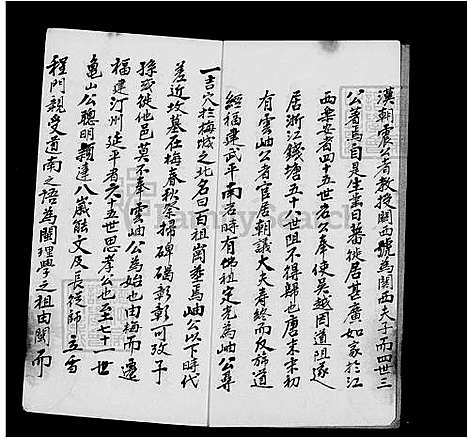 漢朝震公者教授関西號為関西夫子而四世三
公者焉自是生齒日蕃徙居甚廣如家於江
西樂安者四十五世名公奉使吳越因道阻遂
居浙江錢塘五十世阻不得歸也唐末宋初
有雲岫公者官居朝議大夫壽終而反旐道
經福建武平南岩時有佛祖定光為岫公尋
一吉穴於梅城之北名曰百祖崗塟焉岫公以下時代
差近坟墓在梅春秋祭掃碑碣彰彰可攷子
孫或徙他邑莫不奉雲岫公為始也由梅而遷
福建汀州延平者六十五世思孝公也至七十一世
龜山公聰明穎達八歲能文及長從師立雪
程門親受道南之語為閩理學之祖由閩而
FamilySearch